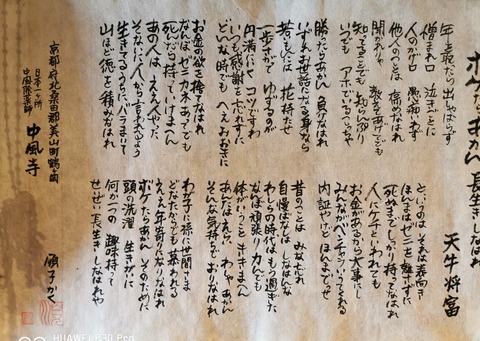 ボケたらあかん 長生きしなはれ
天牛将富
年をとったら出しゃばらず
憎まれ口 泣きごとに
人のかげ口 愚痴いわず
他人のことは 褒めなはれ
聞かれりゃ 教えてあげても
知ってることでも 知らんふり
いつでも アホでいるこっちゃ
勝ったらあかん 負けなはれ
いずれお世話になる身なら
若いもんには 花持たせ
一歩さがって ゆずるのが
円満にいく コツですわ
いつも感謝を 忘れずに
どんな時でも へえおおきに
お金の欲を 捨てなはれ
なんぼゼニカネ あってでも
死んだら持って いけまへん
あの人は ええ人やった
そないに人から 言われるよう
生きてるうちに バラまいて
山ほど徳を 積みなはれ
というのは それは表向き
ほんまはゼニを 離さずに
死ぬまでしっかり 持ってなはれ
人にケチと いわれても
お金があるから 大事にし
みんなベンチャラいうてくれる
内証やけど ほんまだっせ
昔のことは みな忘れ
自慢ばなしは しなはんな
わしらの時代は もう過ぎた
なんぼ頑張り 力んでも
体がいうこと ききまへん
あんたはえらい わしゃあかん
そんな気持ちで おりなはれ
わが子に孫に 世間さま
どなたからでも 慕われる
ええ年寄りに なりなはれ
ボケたらあかん そのために
頭の洗濯 生きがいに
何か一つの 趣味持って
せいぜい長生き しなはれや
京都府北桑田郡美山町鶴ヶ岡
日本一ヶ所
中風除薬師
中風寺
かく
HUAWEI P30 Pro